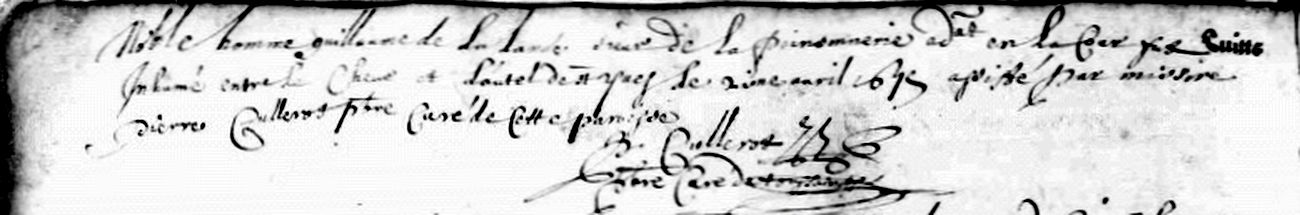 Noble homme guillaume de la lande sieur de la poinsonnerie adat en la Cour fut
Inhumé entre le et l'autel de st yves le avril assisté par missire
Pierre Cullerot pbre Curé de Cette paroisse
P. Cullerot
pbre Curé de